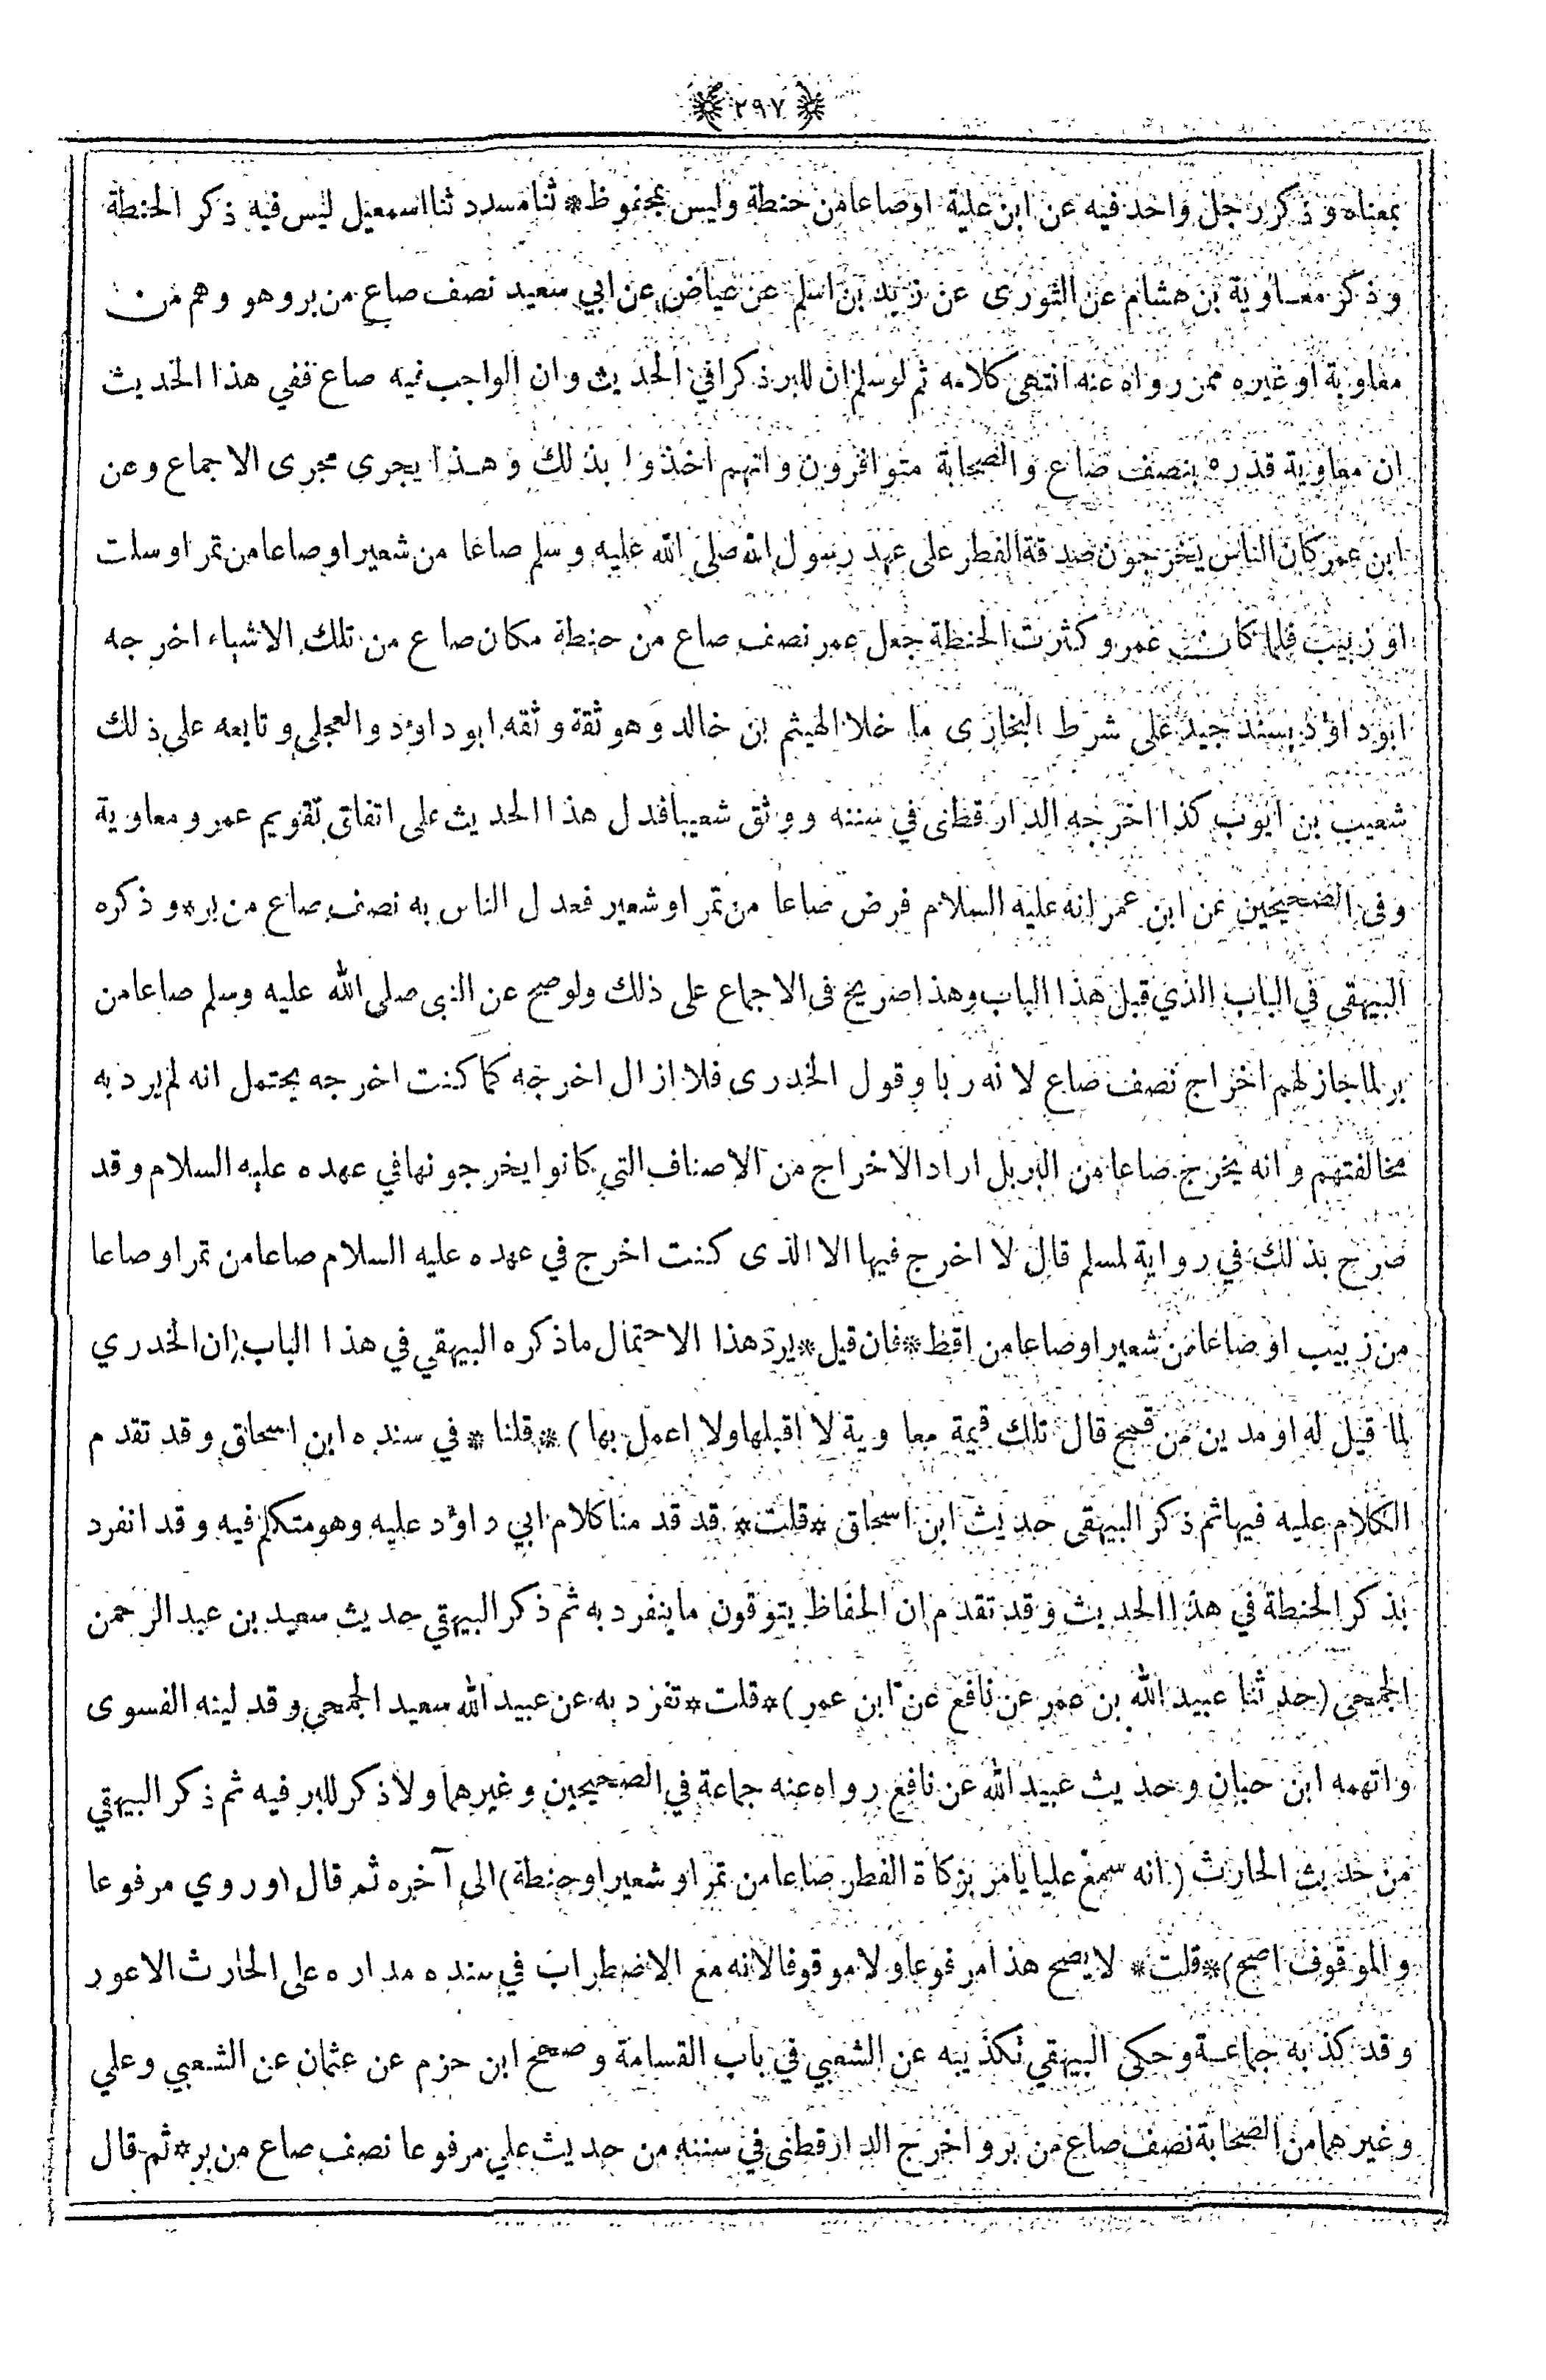 ﴿ ٢٩٧ ﴾
بمعناه و ذكر رجل واحد فيه عن ابن علية او صاعا من حنطة وليس بمحفوظ * ثنا مسدد ثنا اسمعيل ليس فيه ذكر الحنطة
و ذكر معاوية بن هشام عن الثورى عن زيد بن اسلم عن عياض عن ابي سعيد نصف صاع من بر وهو وهم من
معاوية او غيره ممن رواه عنه انتهى كلامه ثم لو سلم ان للبر ذكرا في الحديث وان الواجب فيه صاع ففي هذا الحديث
ان معاوية قدره بنصف صاع والصحابة متوافرون وانهم اخذوا بذلك وهذا يجرى مجرى الاجماع وعن
ابن عمر كان الناس يخرجون صدقة الفطر على عهد رسول الله صلى الله عليه وسلم صاعا من شعير او صاعا من تمر او سلت
او زبيب فلما كان عمر وكثرت الحنطة جعل عمر نصف صاع من حنطة مكان صاع من تلك الاشياء اخرجه
ابو داؤد بسند جيد على شرط البخارى ما خلا الهيثم بن خالد وهو ثقة وثقه ابو داؤد والعجلي وتابعه على ذلك
شعيب بن ايوب كذا اخرجه الدارقطنى في سننه ووثق شعيبا فدل هذا الحديث على اتفاق تقويم عمر ومعاوية
وفى الصحيحين عن ابن عمر انه عليه السلام فرض صاعا من تمر او شعير فعدل الناس به نصف صاع من بر * وذكره
البيهقى في الباب الذي قبل هذا الباب وهذا صريح فى الاجماع على ذلك ولو صح عن النبي صلى الله عليه وسلم صاعا من
بر لما جاز لهم اخراج نصف صاع لانه ربا وقول الخدرى فلا ازال اخرجه كما كنت اخرجه يحتمل انه لم يرد به
مخالفتهم وانه يخرج صاعا من البر بل اراد الاخراج من الاصناف التي كانوا يخرجونها في عهده عليه السلام وقد
صرح بذلك في رواية لمسلم قال لا اخرج فيها الا الذى كنت اخرج في عهده عليه السلام صاعا من تمر او صاعا
من زبيب او صاعا من شعير او صاعا من اقط * فان قيل * يرد هذا الاحتمال ما ذكره البيهقي في هذا الباب (ان الخدري
لما قيل له او مدين من قمح قال تلك قيمة معاوية لا اقبلها ولا اعمل بها) * قلنا * في سنده ابن اسحاق وقد تقدم
الكلام عليه فيها ثم ذكر البيهقى حديث ابن اسحاق * قلت * قد قدمنا كلام ابي داؤد عليه وهو متكلم فيه وقد انفرد
بذكر الحنطة في هذا الحديث وقد تقدم ان الحفاظ يتوقون ما ينفرد به ثم ذكر البيهقي حديث سعيد بن عبد الرحمن
الجمحى (حدثنا عبيد الله بن عمر عن نافع عن ابن عمر) * قلت * تفرد به عن عبيد الله سعيد الجمحي وقد لينه الفسوى
واتهمه ابن حبان وحديث عبيد الله عن نافع رواه عنه جماعة في الصحيحين وغيرهما ولا ذكر للبر فيه ثم ذكر البيهقي
من حديث الحارث (انه سمع عليا يامر بزكاة الفطر صاعا من تمر او شعير او حنطة) الى آخره ثم قال (وروي مرفوعا
والموقوف اصح) * قلت * لا يصح هذا مرفوعا ولا موقوفا لانه مع الاضطراب في سنده مداره على الحارث الاعور
وقد كذبه جماعة وحكى البيهقي تكذيبه عن الشعبي في باب القسامة وصحح ابن حزم عن عثمان عن الشعبي وعلي
وغيرهما من الصحابة نصف صاع من بر واخرج الدارقطنى في سننه من حديث علي مرفوعا نصف صاع من بر * ثم قال